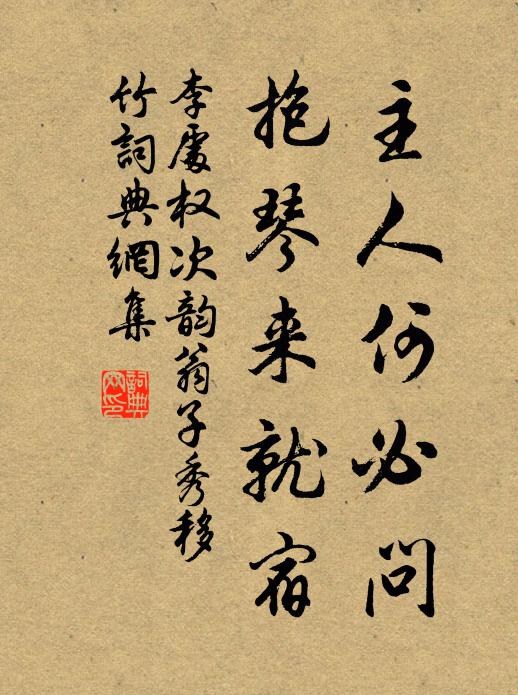 主人何必问
抱琴来就宿
李处权次韵翁子秀移
竹詞典網集
詞典網印